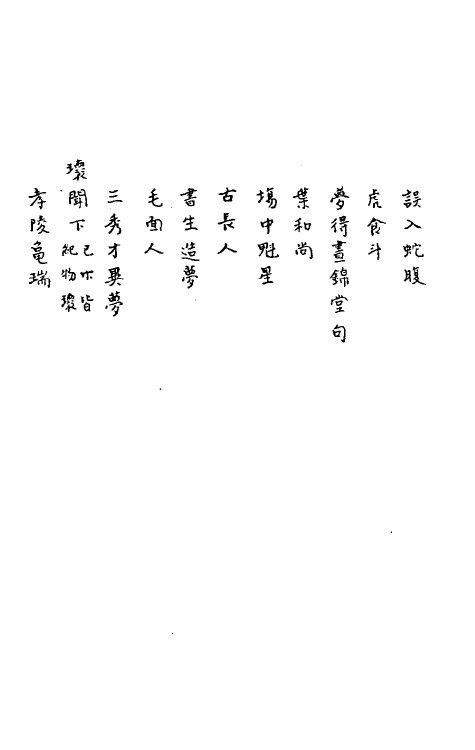 誤入蛇腹
虎食斗
夢得晝錦堂句
葉和尚
塲中魁星
古長人
書生造夢
毛面人
三秀才異夢
瓌聞下 已皆紀物瓌
孝陵龜瑞